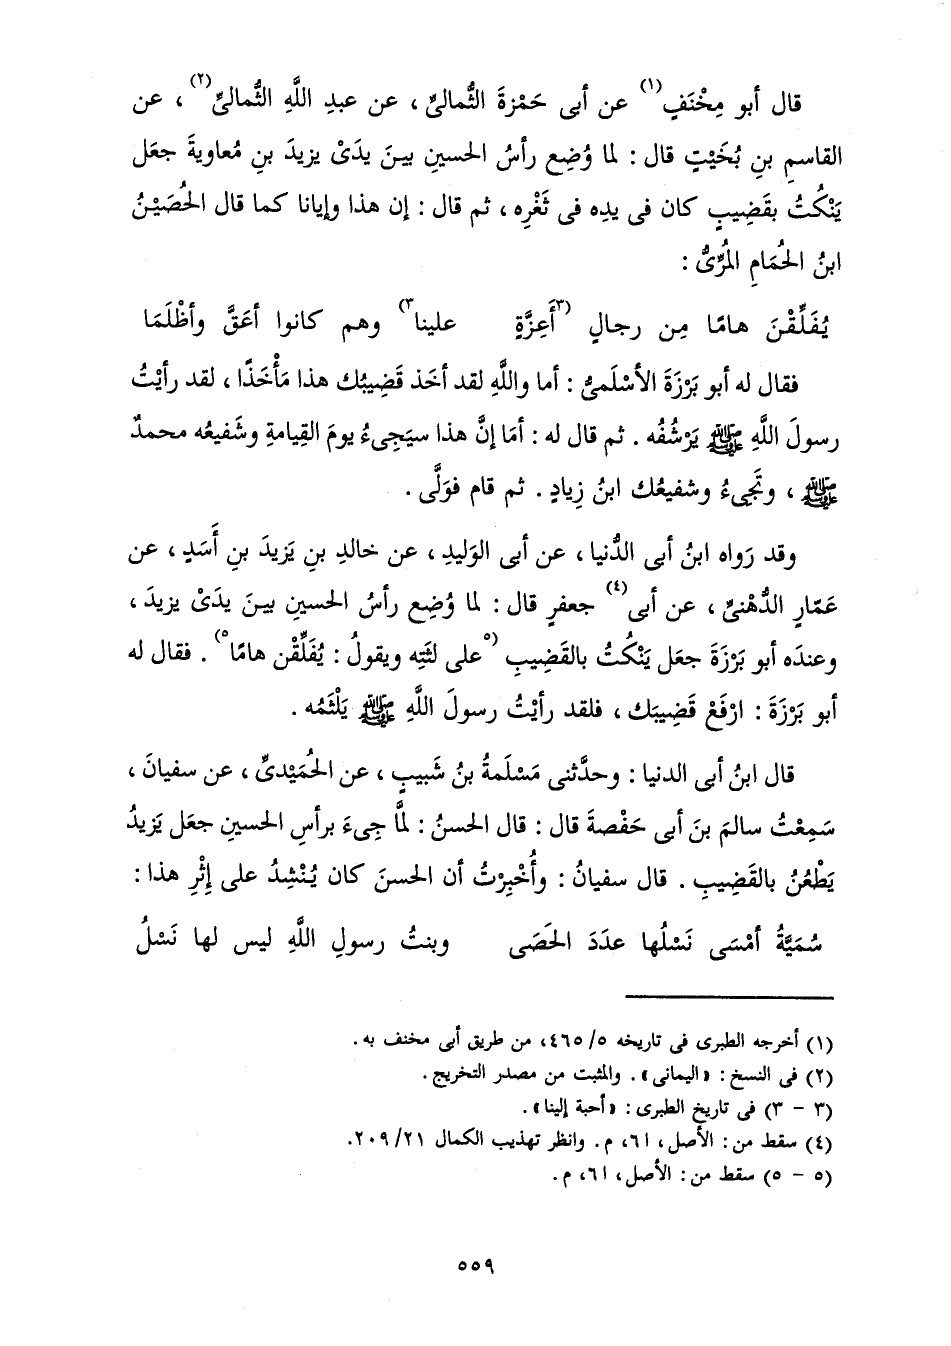 قال أبو مِخْنَفٍ(١) عن أبى حَمْزةَ الثُّمالىِّ ، عن عبدِ اللَّهِ الثُّمالىِّ(٢) ، عن
القاسمِ بنِ بُخَيْتٍ قال : لما وُضِع رأسُ الحسينِ بينَ يدَىْ يزيدَ بنِ مُعاويةَ جعَل
يَنْكُتُ بقَضِيبٍ كان فى يدِه فى ثَغْرِه ، ثم قال : إن هذا وإيانا كما قال الحُصَيْنُ
ابنُ الحُمَامِ المُرِّىُّ :
يُفَلِّقْنَ هامًا مِن رجالٍ (٣أَعِزَّةٍ علينا٣) وهم كانوا أعَقَّ وأظْلَمَا
فقال له أبو بَرْزَةَ الأسْلَمىُّ : أما واللَّهِ لقد أخَذ قَضِيبُك هذا مَأْخَذًا ، لقد رأيْتُ
رسولَ اللَّهِ ﷺ يَرْشُفُه . ثم قال له : أمَا إنَّ هذا سيَجِىءُ يومَ القِيامةِ وشَفيعُه محمدٌ
ﷺ ، وتَجِىءُ وشفيعُك ابنُ زِيادٍ . ثم قام فوَلَّى .
وقد رَواه ابنُ أبى الدُّنيا ، عن أبى الوَليدِ ، عن خالدِ بنِ يَزيدَ بنِ أَسَدٍ ، عن
عَمّارٍ الدُّهْنىِّ ، عن أبى(٤) جعفرٍ قال : لما وُضِع رأسُ الحسينِ بينَ يدَىْ يزيدَ ،
وعندَه أبو بَرْزَةَ جعَل يَنْكُتُ بالقَضِيبِ (٥على لثتِه ويقولُ : يُفَلِّقْن هامًا٥) . فقال له
أبو بَرْزَةَ : ارْفَعْ قَضِيبَك ، فلقد رأيْتُ رسولَ اللَّهِ ﷺ يَلْثَمُه .
قال ابنُ أبى الدنيا : وحدَّثنى مَسْلَمةُ بنُ شَبيبٍ ، عن الحُمَيْدىِّ ، عن سفيانَ ،
سَمِعْتُ سالمَ بنَ أبى حَفْصةَ قال : قال الحسنُ : لمَّا جِىءَ برأسِ الحسينِ جعَل يَزيدُ
يَطْعُنُ بالقَضِيبِ . قال سفيانُ : وأُخْبِرْتُ أن الحسنَ كان يُنْشِدُ على إثْرِ هذا :
سُمَيَّةُ أمْسَى نَسْلُها عدَدَ الحَصَى وبنتُ رسولِ اللَّهِ ليس لها نَسْلُ
(١) أخرجه الطبرى فى تاريخه ٤٦٥/٥، من طريق أبى مخنف به .
(٢) فى النسخ : «اليمانى» . والمثبت من مصدر التخريج .
(٣ - ٣) فى تاريخ الطبرى : «أحبة إلينا» .
(٤) سقط من : الأصل ، ٦١، م . وانظر تهذيب الكمال ٢٠٩/٢١.
(٥ - ٥) سقط من : الأصل ، ٦١، م .
٥٥٩